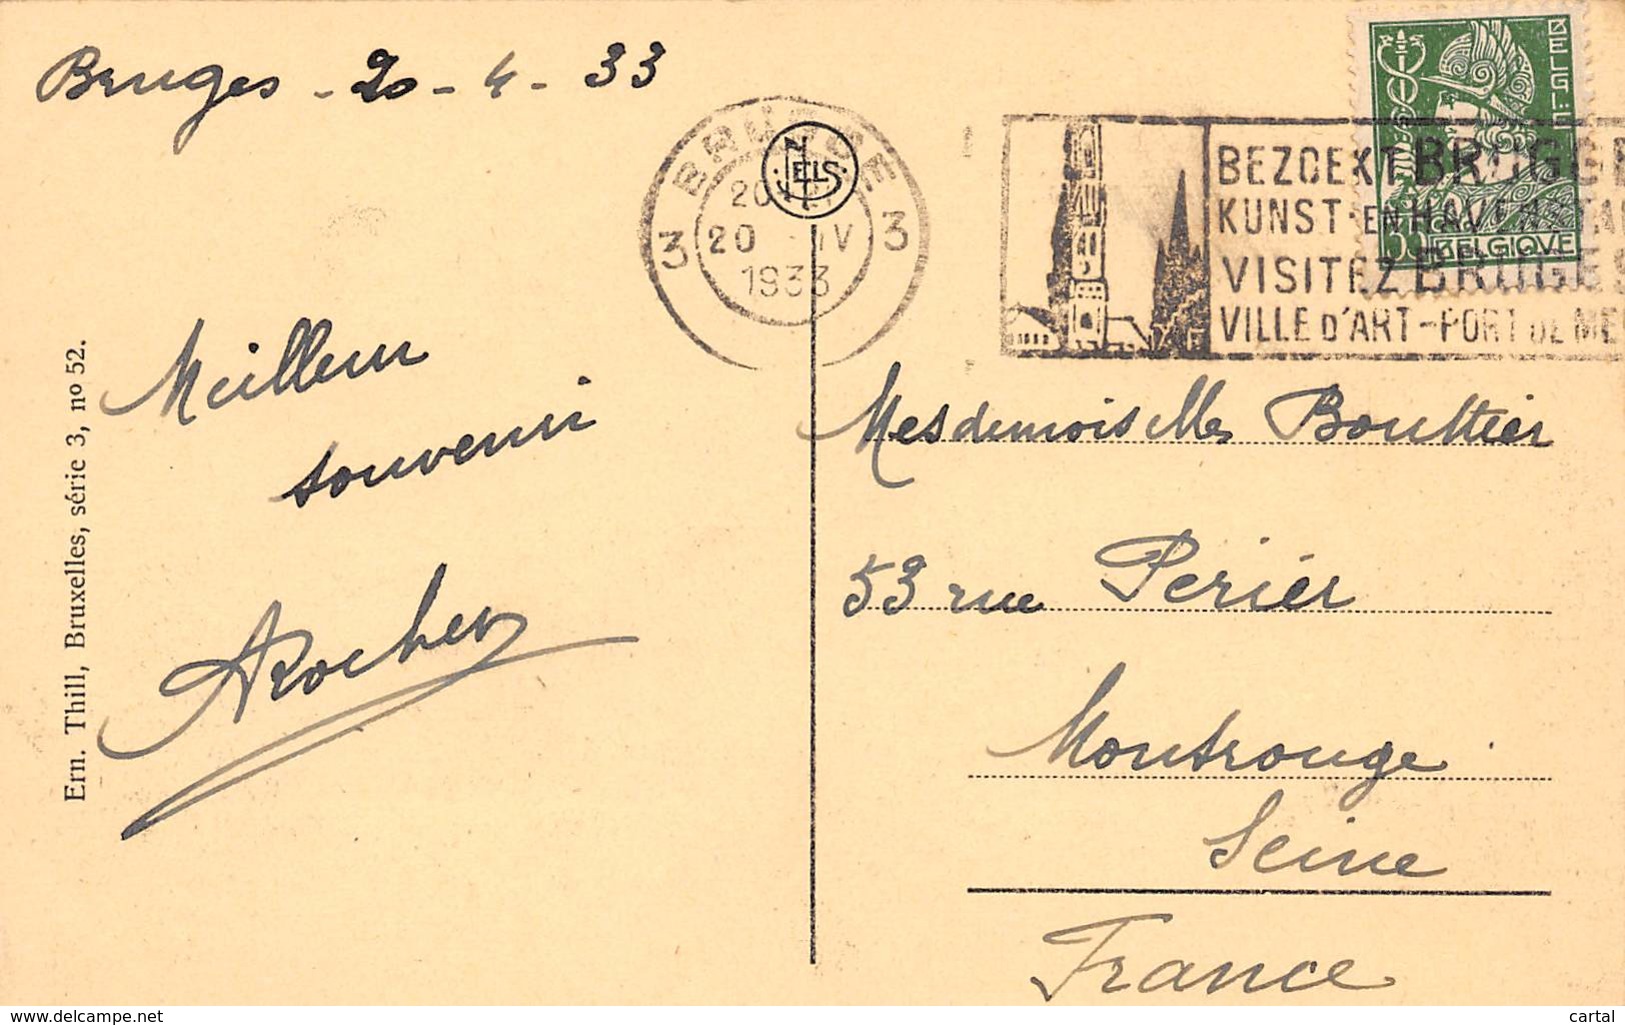 Bruges - 20 - 4 - 33
BRUGGE
3 3
20
20 IV
1933
NELS
BEZOEKT BRUGGE
KUNST- EN HAVENSTA
VISITEZ BRUGES
VILLE D'ART - PORT DE ME
BELGIË
35 BELGIQUE
Meilleur
souvenir
ARocher
Mesdemoiselles Bouttier
53 rue Périer
Montrouge
Seine
France
Ern. Thill, Bruxelles, série 3, nº 52.
www.delcampe.net
cartal